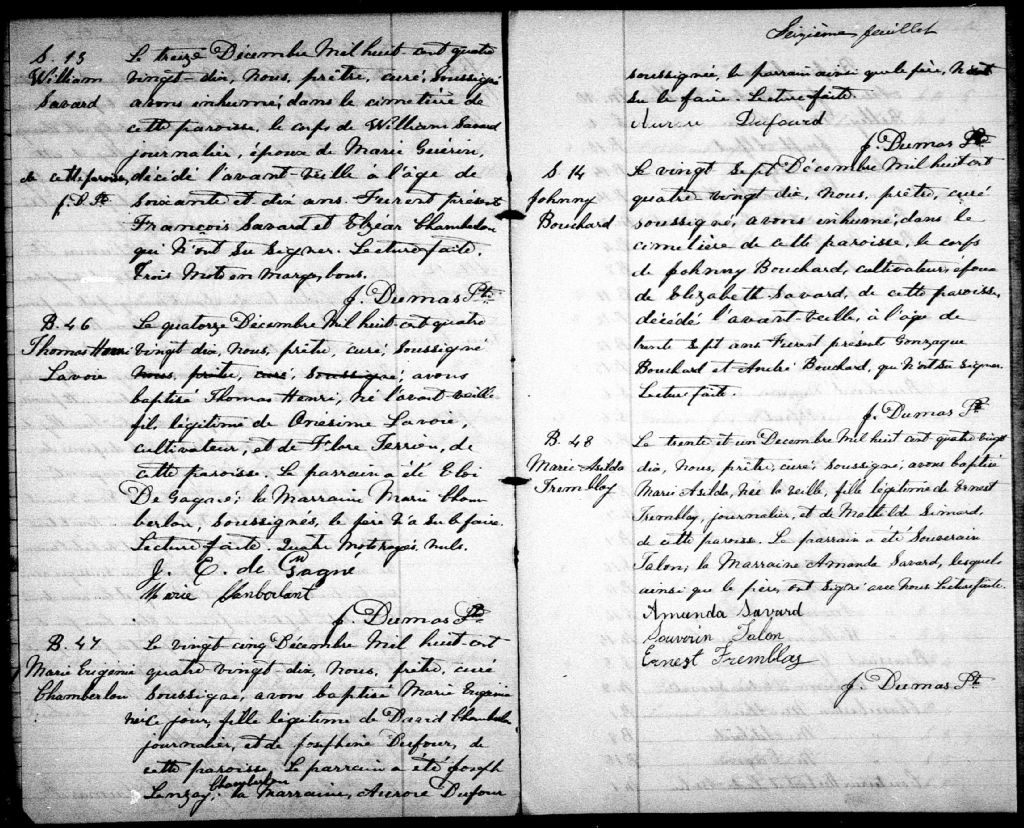 S. 13
William
Savard
de cette paroisse,
J. D. Ptre
Le treize Décembre Mil huit-cent quatre
vingt-dix, Nous, prêtre, curé, soussigné
avons inhumé, dans le cimetière de
cette paroisse, le corps de William Savard
journalier, époux de Marie Guérin,
décédé l'avant-veille à l'âge de
soixante et dix ans. Furent présent
François Savard et Elzéar Chamberlan
qui N'ont su signer. Lecture faite.
Trois Mots en marge, bons.
J. Dumas Ptre
B. 46
Thomas Henri
Lavoie
Le quatorze Décembre Mil huit-cent quatre
vingt dix, Nous, prêtre, curé, soussigné
Nous, prêtre, curé, soussigné, avons
baptisé Thomas Henri, Né l'avant veille
fils légitime de Onésime Lavoie,
cultivateur, et de Flore Terrion, de
cette paroisse. Le parrain a été Eloi
De Gagné; la Marraine Marie Cham
berlan, soussignés, le père N'a su le faire.
Lecture faite. Quatre Mots rayés, nuls.
J. E. de Gagné
Marie Chanberlant
J. Dumas Ptre
B. 47
Marie Eugénie
Chamberlan
Le vingt cinq Décembre Mil huit-cent
quatre vingt-dix, Nous, prêtre, curé
soussigné, avons baptisé Marie Eugénie
née ce jour, fille légitime de David Chamberlan
journalier, et de Joséphine Dufour, de
cette paroisse. Le parrain a été Joseph
Chamberlan
; la Marraine, Aurore Dufour
Seizième feuillet
soussignée, le parrain ainsi que le père, N'ont
su le faire. Lecture faite.
Aurore Dufourd
J. Dumas Ptre
S 14
Johnny
Bouchard
Le vingt sept Décembre Mil huit cent
quatre vingt dix, Nous, prêtre, curé
soussigné, avons inhumé, dans le
cimetière de cette paroisse, le corps
de Johnny Bouchard, cultivateur, époux
de Elizabeth Savard, de cette paroisse,
décédé l'avant-veille, à l'âge de
trente sept ans Furent présent Gonzague
Bouchard et André Bouchard, qui N'ont su signer.
Lecture faite.
J. Dumas Ptre
B. 48
Marie Asilda
Tremblay
Le trente et un Décembre Mil huit cent quatre vingt
dix, Nous, prêtre, curé, soussigné, avons baptisé
Marie Asilda, Née la veille, fille légitime de Ernest
Tremblay, journalier, et de Mathilde Simard,
de cette paroisse. Le parrain a été Souverain
Talon; la Marraine Amanda Savard, lesquels
ainsi que le père, ont signé avec Nous Lecture faite.
Amanda Savard
Souverin Talon
Ernest Tremblay
J. Dumas Ptre